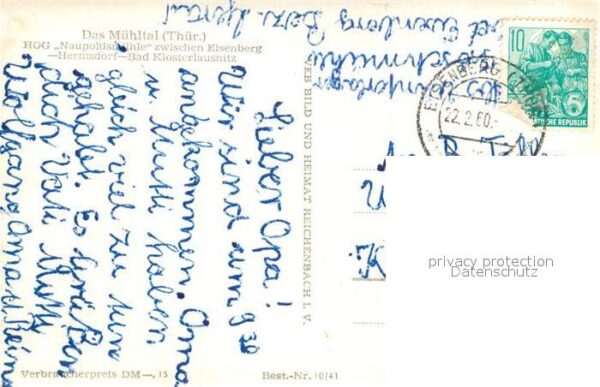 Das Mühltal (Thür.)
HOG „Naupoldsmühle" zwischen Eisenberg
—Hermsdorf—Bad Klosterlausnitz
Lieber Opa!
Wir sind um 9 30
angekommen. Oma
u Mutti haben
gleich viel zu tun
gehabt. Es grüßen
dich Vati Mutti
Wolfgang Oma u. Reina
VEB BILD UND HEIMAT REICHENBACH I. V.
Verbraucherpreis DM —, 15
Best.-Nr. 10/41
Eisenberg
10
EISENBERG (THÜR)
22.2.60.-
DEUTSCHE REPUBLIK
privacy protection
Datenschutz